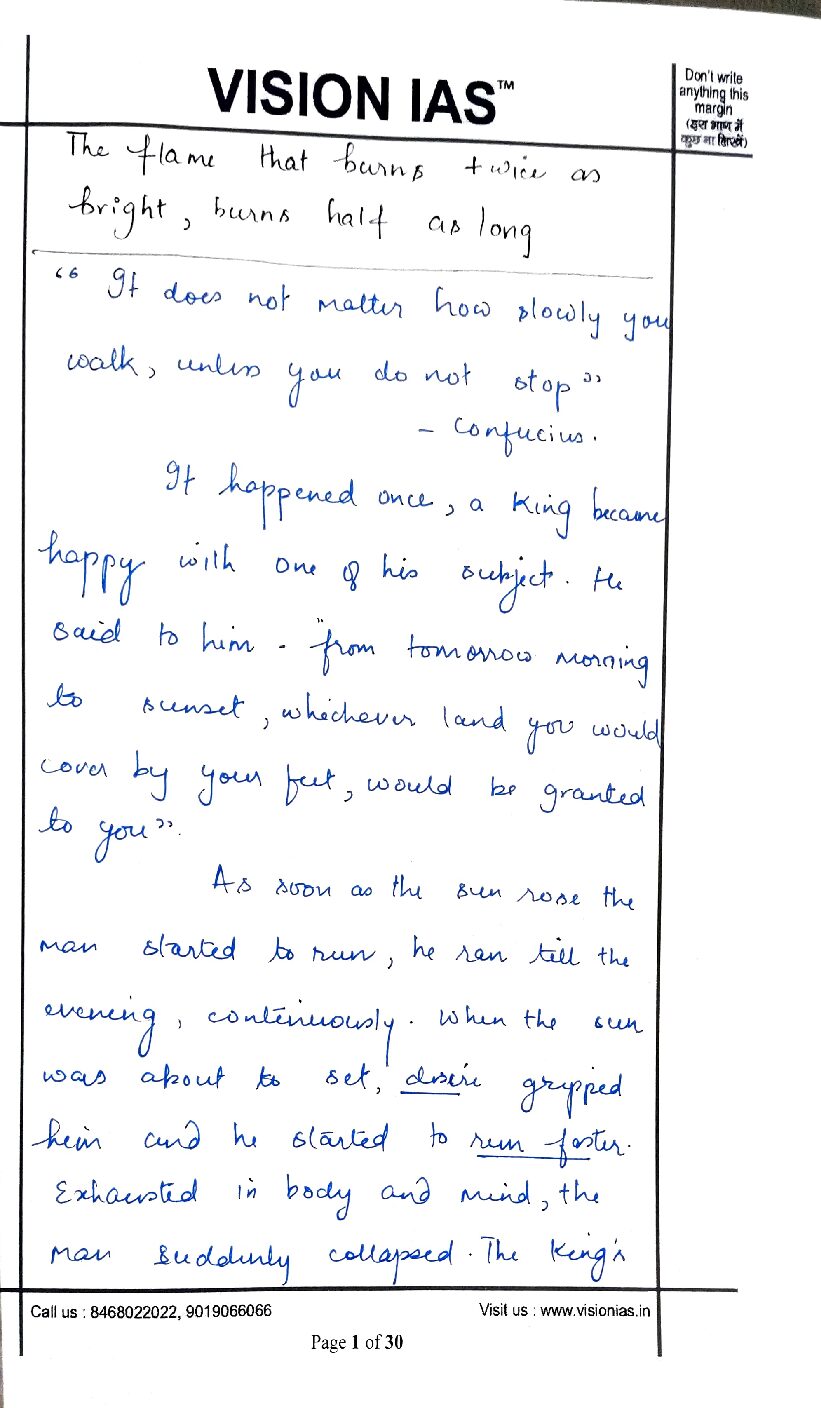 VISION IAS™
Don't write
anything this
margin
(इस भाग में
कुछ ना लिखें)
The flame that burns twice as
bright, burns half as long
“ It does not matter how slowly you
walk, unless you do not stop”
- Confucius.
It happened once, a King became
happy with one of his subject. He
said to him - "from tomorrow morning
to sunset, whichever land you would
cover by your feet, would be granted
to you”.
As soon as the sun rose the
man started to run, he ran till the
evening, continuously. When the sun
was about to set, desire gripped
him and he started to run faster.
Exhausted in body and mind, the
man suddenly collapsed. The King's
Call us : 8468022022, 9019066066
Visit us : www.visionias.in
Page 1 of 30